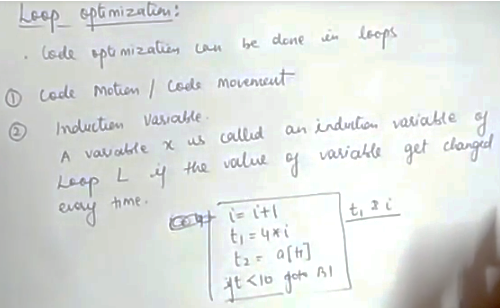 Loop optimization:
. Code optimization can be done in loops
① Code Motion / Code Movement
② Induction Variable.
A variable x is called an induction variable of
Loop L if the value of variable get changed
every time.
i = i+1
t₁ = 4*i
t₂ = a[t₁]
if t < 10 goto B1
t₁ & i